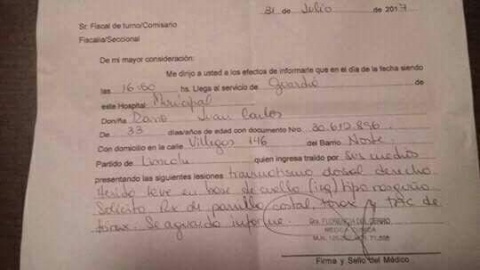 31 de Julio de 2017
Sr. Fiscal de turno/Comisario
Fiscalia/Seccional
De mi mayor consideración:
Me dirijo a usted a los efectos de informarle que en el día de la fecha siendo
las 16:50 hs. Llega al servicio de Guardia de
este Hospital Municipal
Don/ña Juan Carlos
De 33 días/años de edad con documento Nro. 30.612.896
Con domicilio en la calle Villegas 146 del Barrio Norte.
Partido de Lincoln quien ingresa traído por sus medios
presentando las siguientes lesiones traumatismo dorsal derecho
Herida leve en base de cuello (izq) tipo rasguño
Solicito Rx de parrilla costal, torax y TAC de
torax. Se aguarda informe.
MEDICA
Firma y Sello del Médico